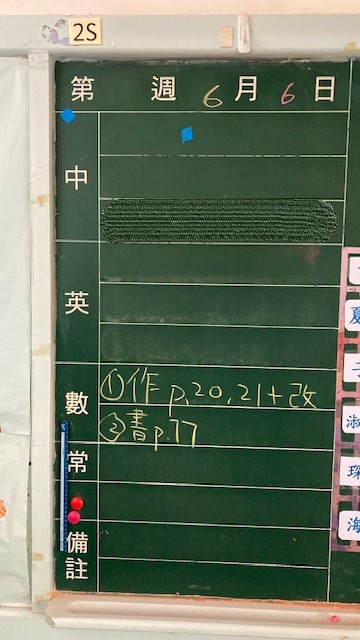 2S
第 週 6 月 6 日
中
英
數 ①作 p.20,21+改
②書p.77
常
備註
夏
淑
琛
海